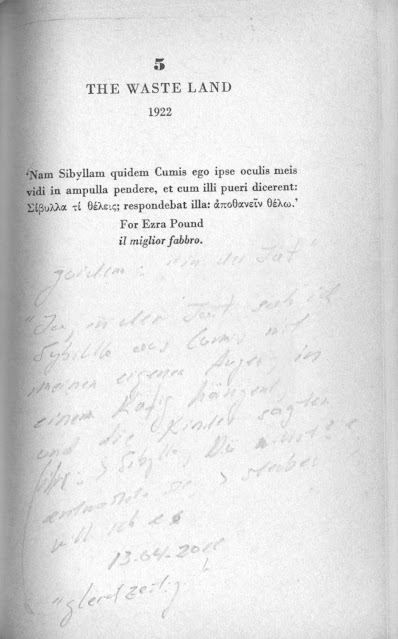 5
THE WASTE LAND
1922
'Nam Sibyllam quidem Cumis ego ipse oculis meis
vidi in ampulla pendere, et cum illi pueri dicerent:
Σίβυλλα τί θέλεις; respondebat illa: ἀποθανεῖν θέλω.'
For Ezra Pound
il miglior fabbro.
quidem: "in der Tat"
"Ja, in der Tat sah ich
Sybille aus Cumis mit
meinen eigenen Augen in
einem Käfig hängen
und die Kinder sagten
Sibylle,
antwortete sie, sterben
will ich
13.04.20
"gleichzeitig